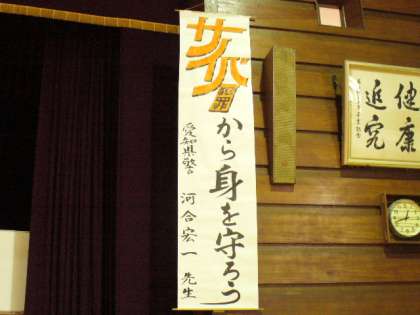 サイバー
犯罪
から身を守ろう
愛知県警 河合宏一 先生
健康
追究